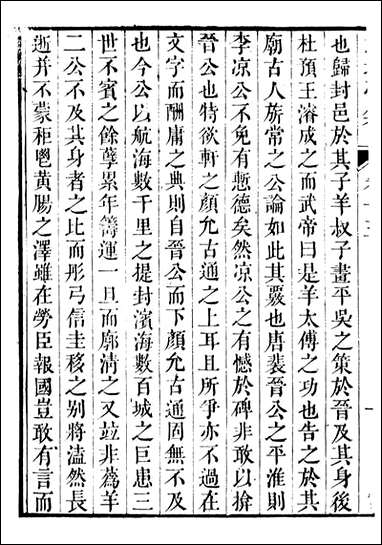 也歸封邑於其子羊叔子畫平吳之策於晉及其身後
杜預王濬成之而武帝曰是羊太傅之功也告之於其
廟古人旂常之公論如此其覈也唐裴晉公之平淮則
李凉公不免有慙德矣然凉公之有憾於碑非敢以揜
晉公也特欲軒之顏允古通之上耳且所爭亦不過在
文字而酬庸之典則自晉公而下顏允古通固無不及
也今公以航海數千里之提封濱海數百城之巨患三
世不賓之餘孽累年籌運一旦而廓清之又竝非爲羊
二公不及其身者之比而彤弓信圭移之别將溘然長
逝并不蒙秬鬯黃腸之澤雖在勞臣報國豈敢有言而